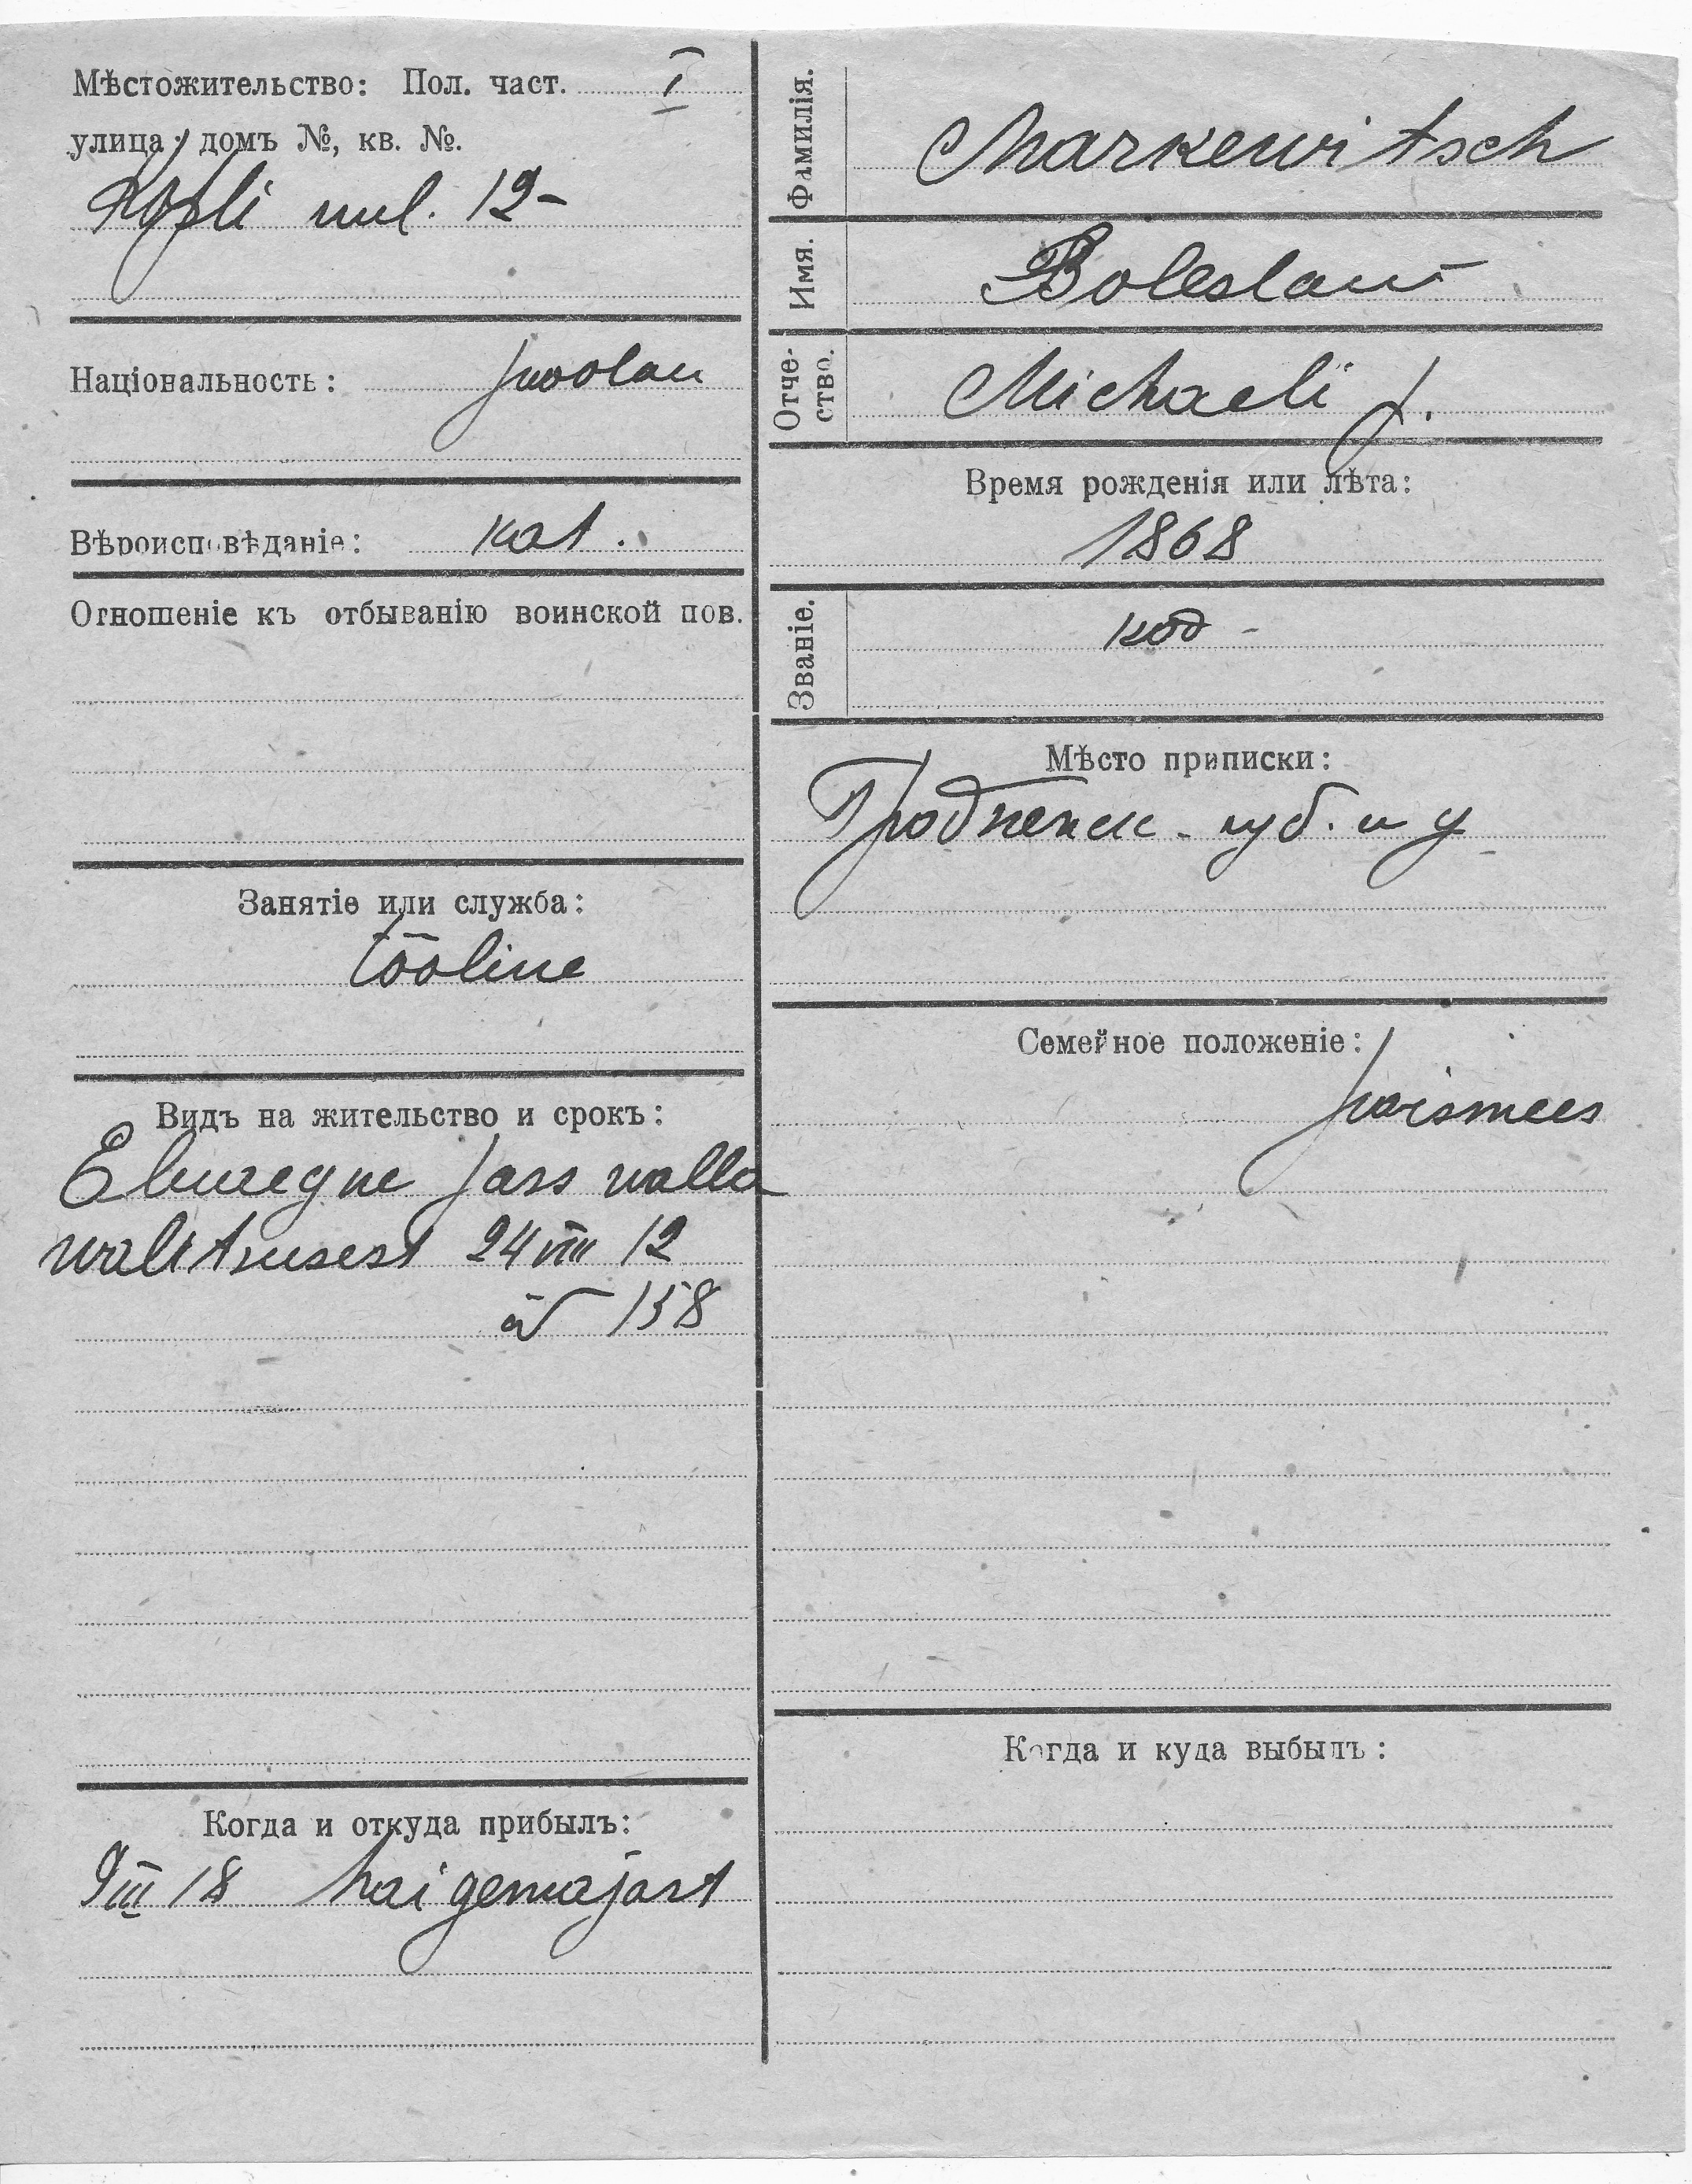 Мѣстожительство: Пол. част. I
улица, домъ №, кв. №.
Kopli uul. 12-
Національность: poolau
Вѣроисповѣданіе: kat.
Отношеніе къ отбыванію воинской пов.
Занятіе или служба:
tööline
Видъ на жительство и срокъ:
walla
walitsusest 24 VIII 12
№ 158
Когда и откуда прибылъ:
9 III 18 haigemajast
Фамилія. Markewitsch
Имя. Boleslaw
Отчество. Michaeli p.
Время рожденія или лѣта:
1868
Званіе. kod-
Мѣсто приписки:
Гродненск. губ. и у
Семейное положеніе:
poismees
Когда и куда выбылъ: